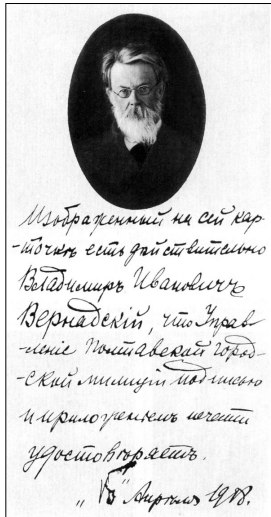 Изображенный на сей кар-
-точкѣ есть дѣйствительно
Владимиръ Ивановичъ
Вернадскій, что Управ-
леніе Полтавской Город-
-ской милиціи подписью
и приложеніемъ печати
удостовѣряетъ.
Апрѣля 1918.